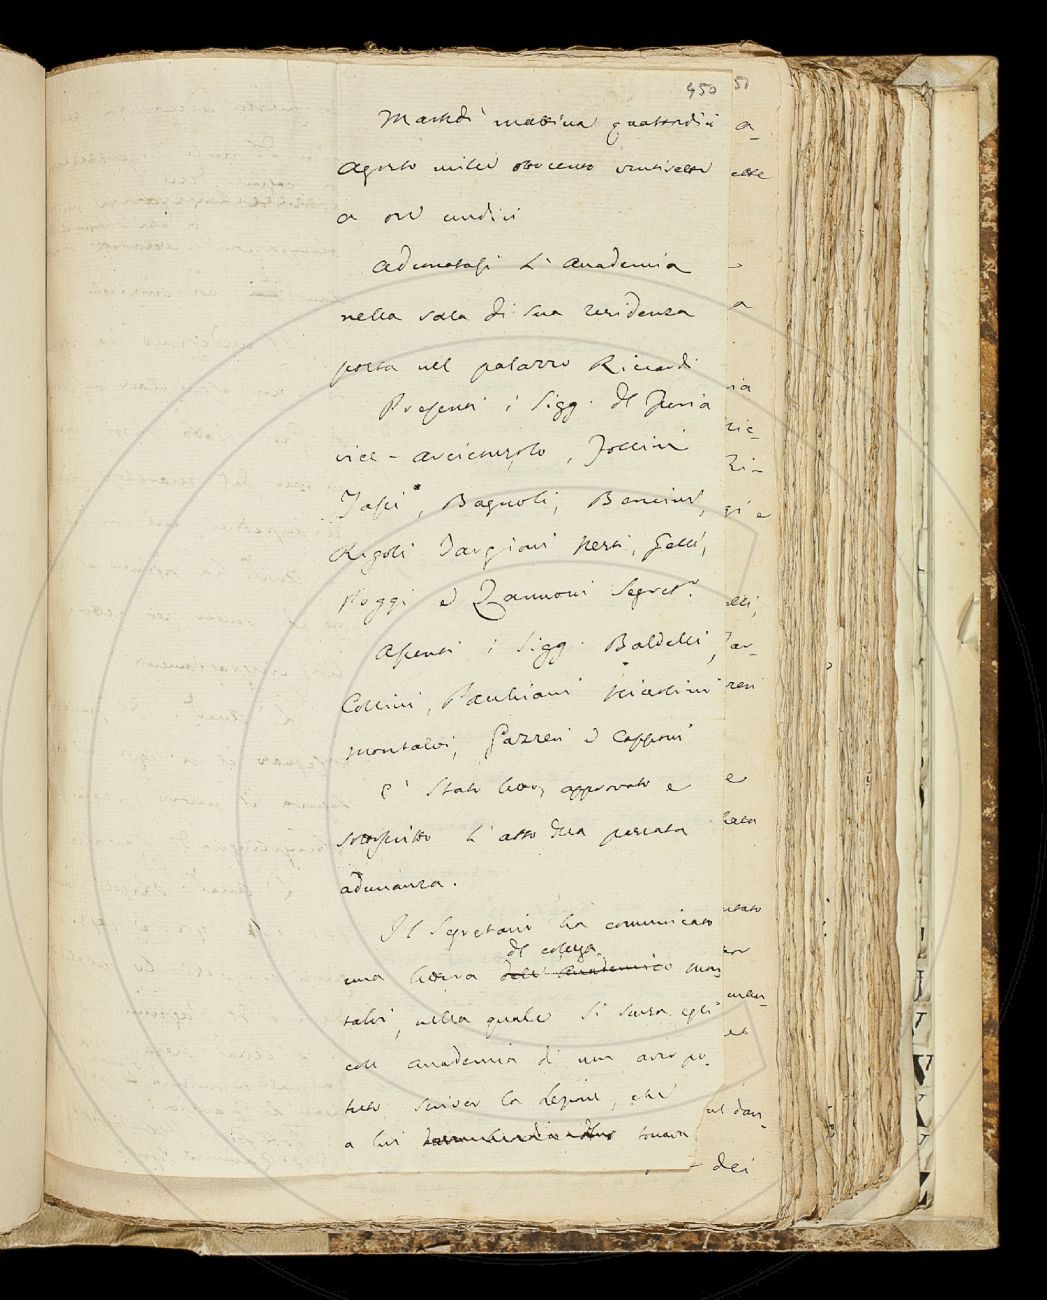 450
Martedì mattina quattordici
Agosto mille ottocento ventisette
a ore undici
Adunatasi L'Accademia
nella sala di sua residenza
posta nel palazzo Riccardi
Presenti i Sigg. Del Furia
vice-arciconsolo, Follini
Bagnoli, Bencini,
Rigoli Targioni Nesti, Gelli,
Poggi e Zannoni Segret.º
Assenti i Sigg. Baldelli,
Collini, Pauliani Niccolini
Montalvi, Gazzeri e Capponi
E' stato letto, approvato e
sottoscritto L'atto della passata
adunanza.
Il Segretario ha comunicato
del collega
una lettera dell'Accademico Mon
talvi, nella quale si scusa egli
coll Accademia di non aver po-
tuto scriver la Lezione, che
a lui toccava
dei